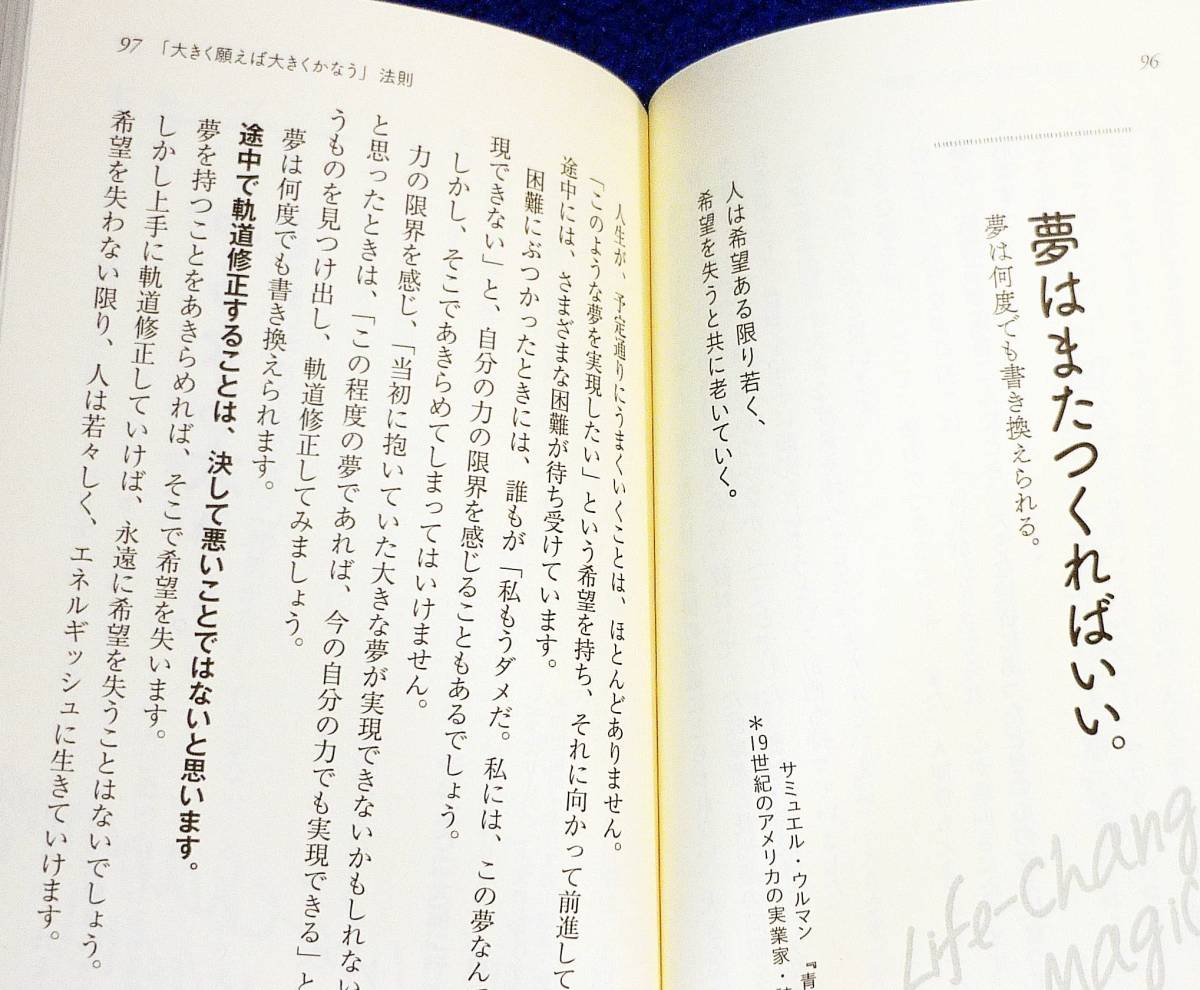 96
夢はまたつくればいい。
夢は何度でも書き換えられる。
人は希望ある限り若く、
希望を失うと共に老いていく。
サミュエル・ウルマン『青
＊19世紀のアメリカの実業家・
Life-Chang
Magic
97 「大きく願えば大きくかなう」法則
人生が、予定通りにうまくいくことは、ほとんどありません。
「このような夢を実現したい」という希望を持ち、それに向かって前進して
途中には、さまざまな困難が待ち受けています。
困難にぶつかったときには、誰もが「私もうダメだ。私には、この夢なんて
現できない」と、自分の力の限界を感じることもあるでしょう。
しかし、そこであきらめてしまってはいけません。
力の限界を感じ、「当初に抱いていた大きな夢が実現できないかもしれない
と思ったときは、「この程度の夢であれば、今の自分の力でも実現できる」と
うものを見つけ出し、軌道修正してみましょう。
夢は何度でも書き換えられます。
途中で軌道修正することは、決して悪いことではないと思います。
夢を持つことをあきらめれば、そこで希望を失います。
しかし上手に軌道修正していけば、永遠に希望を失うことはないでしょう。
希望を失わない限り、人は若々しく、エネルギッシュに生きていけます。